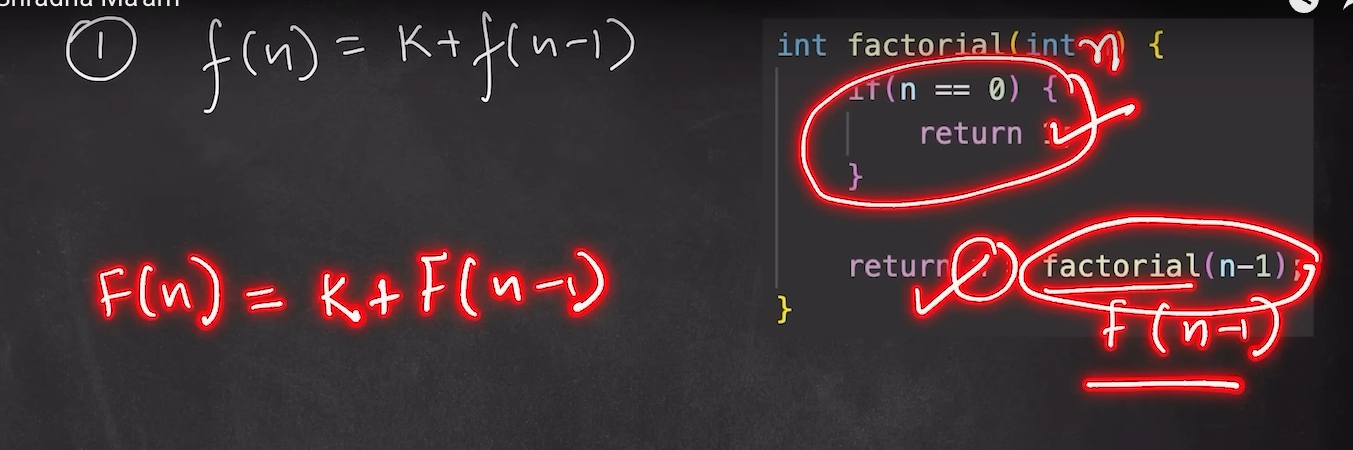 Shradha Ma'am
① f(n) = K+f(n-1)
int factorial(int n) {
if(n == 0) {
return
}
return factorial(n-1);
}
F(n) = K+F(n-1)
f(n-1)